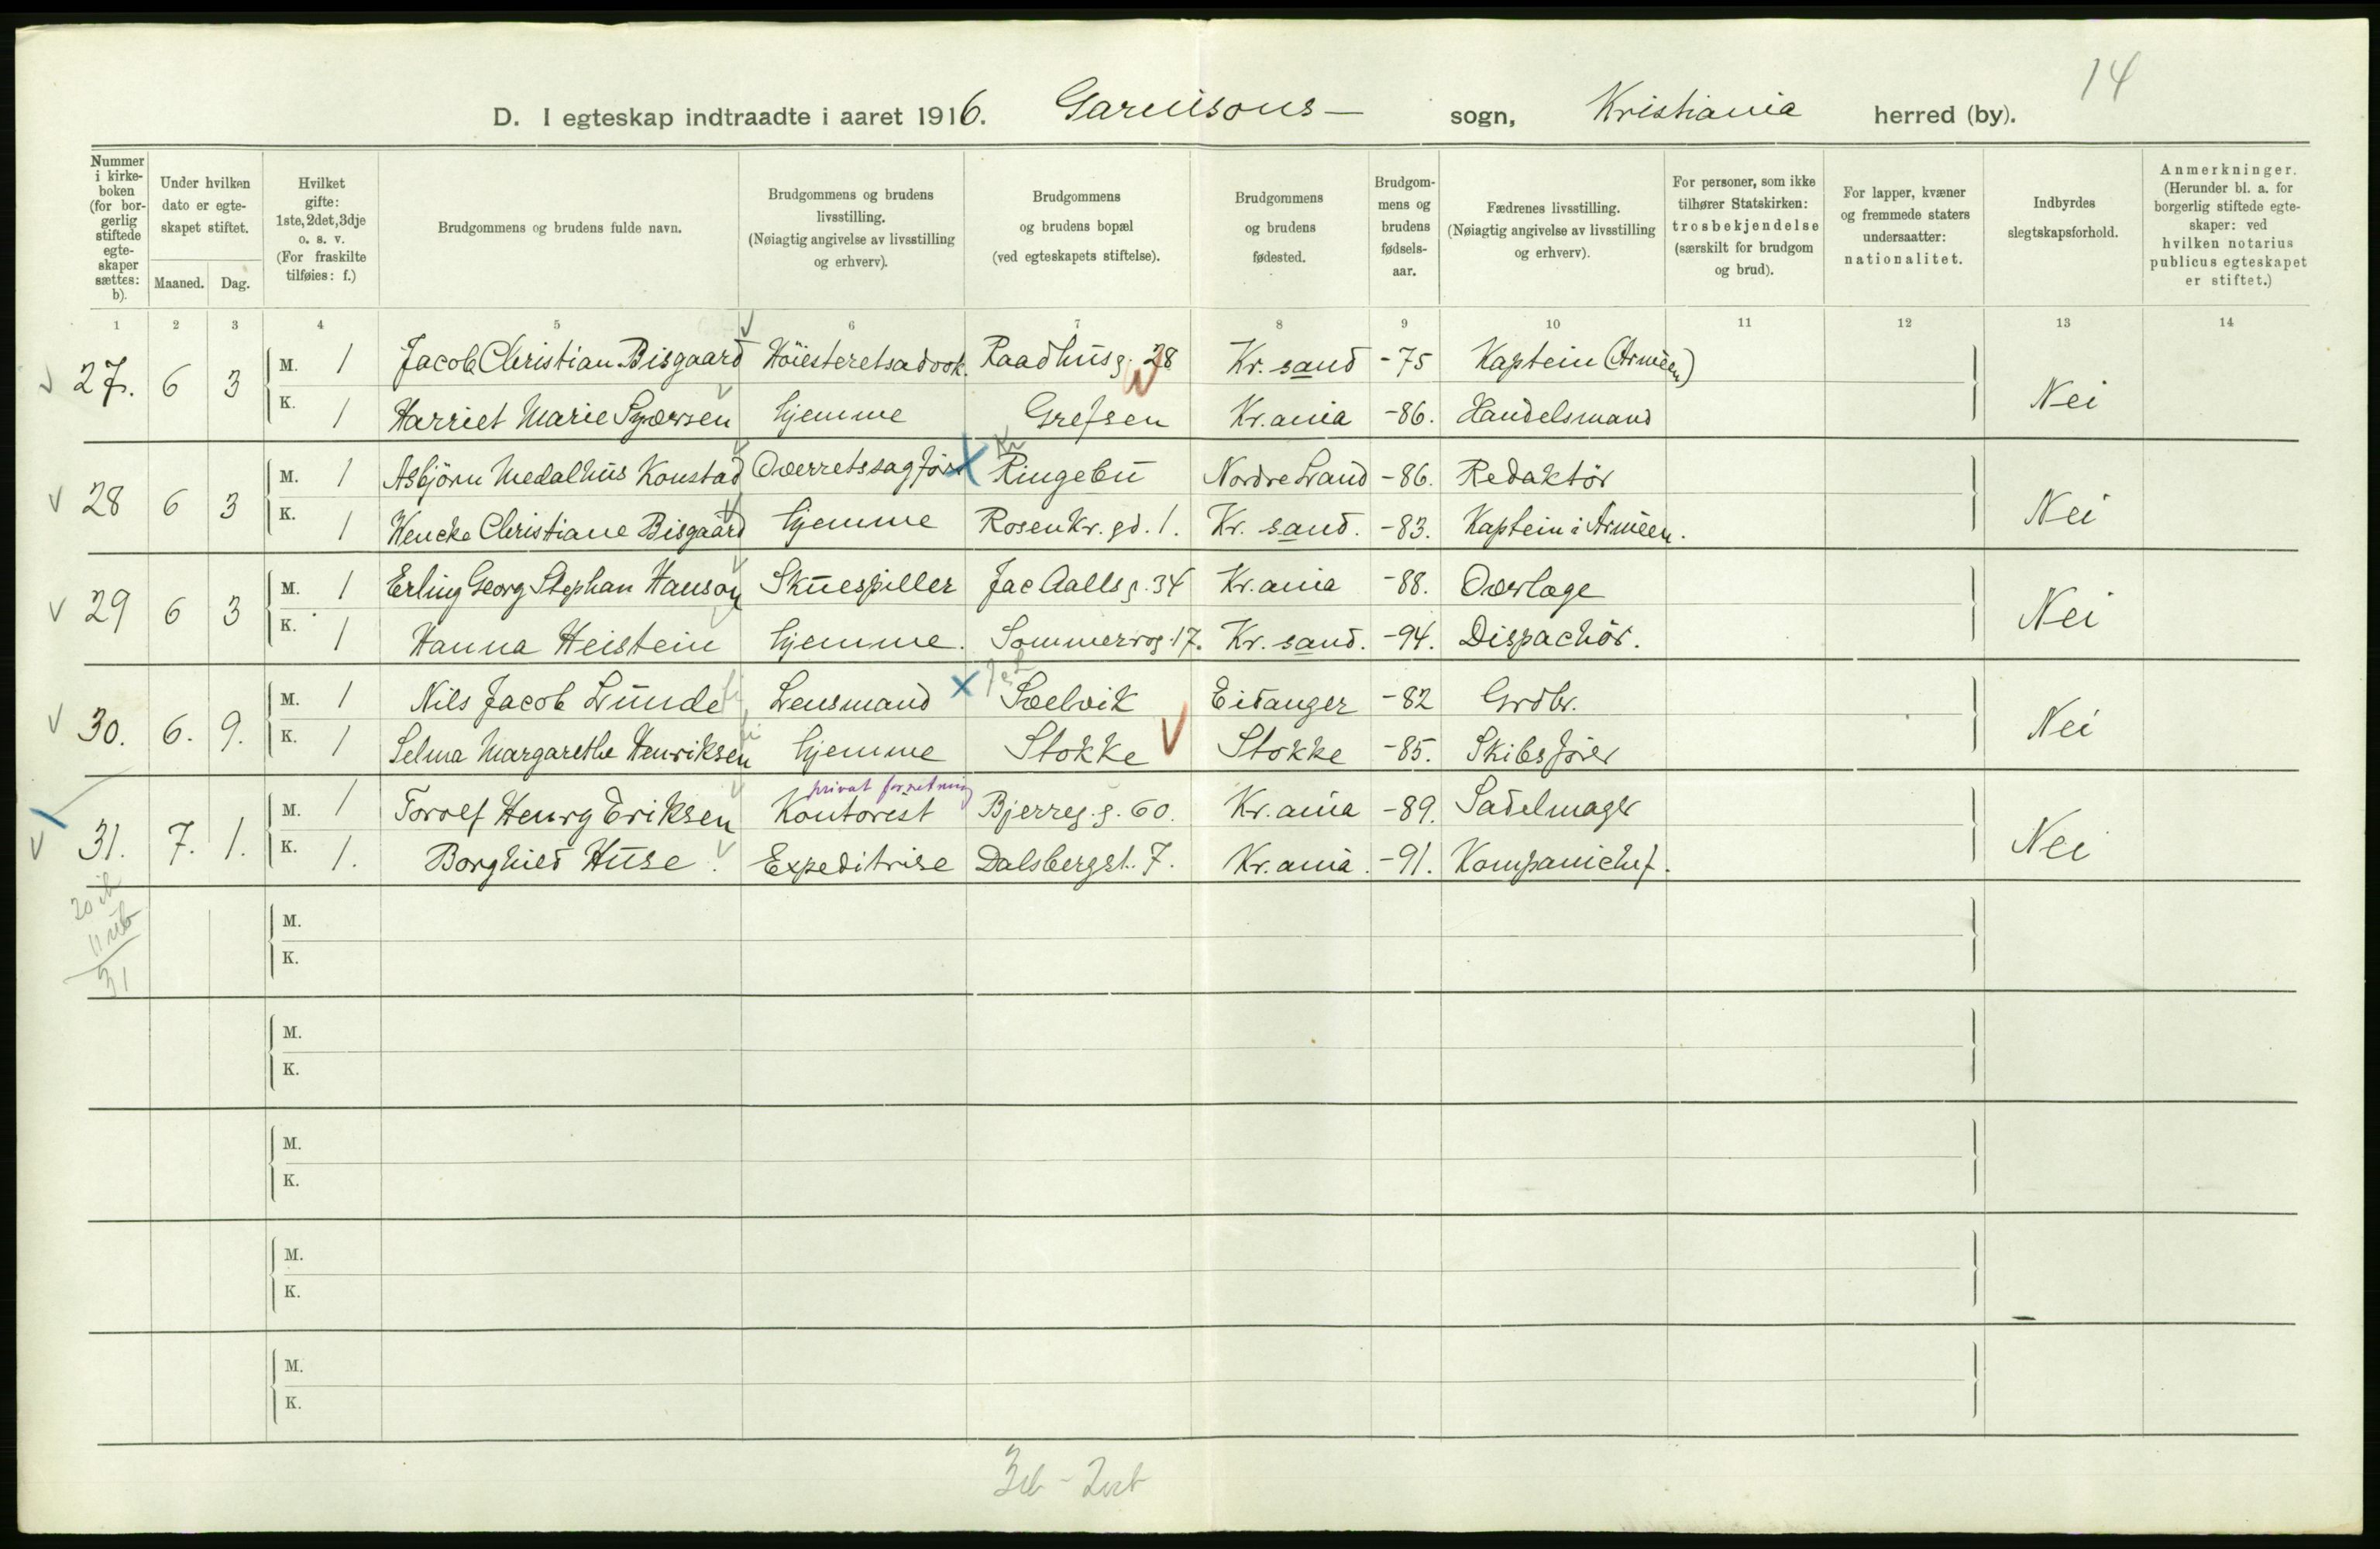 14
D. I egteskap indtraadte i aaret 1916. Garnisons- sogn, Kristiania herred (by).
Nummer i kirke-boken (for bor-gerlig stiftede egte-skaper sættes: b).
Under hvilken dato er egte-skapet stiftet.
Maaned. Dag.
Hvilket gifte: 1ste, 2det, 3dje o. s. v. (For fraskilte tilføies: f.)
Brudgommens og brudens fulde navn.
Brudgommens og brudens livsstilling. (Nøiagtig angivelse av livsstilling og erhverv).
Brudgommens og brudens bopæl (ved egteskapets stiftelse).
Brudgommens og brudens fødested.
Brudgom-mens og brudens fødsels-aar.
Fædrenes livsstilling. (Nøiagtig angivelse av livsstilling og erhverv).
For personer, som ikke tilhører Statskirken: trosbekjendelse (særskilt for brudgom og brud).
For lapper, kvæner og fremmede staters undersaatter: nationalitet.
Indbyrdes slegtskapsforhold.
Anmerkninger. (Herunder bl. a. for borgerlig stiftede egte-skaper: ved hvilken notarius publicus egteskapet er stiftet.)
1 2 3 4 5 6 7 8 9 10 11 12 13 14
27. 6 3 M. 1 Jacob Christian Bisgaard Höiesteretsadvok. Raadhusg. 28 Kr. sand -75 Kaptein (Armeen)
K. 1 Harriet Marie hjemme Grefsen Kr.ania -86. Handelsmand Nei
28 6 3 M. 1 Asbjörn Medalhus Konstad Overretssagför Kr Ringebu Nordre Land -86. Redaktör
K. 1 Wencke Christiane Bisgaard hjemme Rosenkr. gd. 1. Kr. sand. -83. Kaptein i Armeen. Nei
29 6 3 M. 1 Erling Georg Stephan Hanson Skuespiller Jac Aalls g. 34 Kr.ania -88. Overlæge
K. 1 Hanna Heistein hjemme. Sommerrog. 17. Kr. sand. -94. Dispachör. Nei
30. 6. 9. M. 1 Nils Jacob Lunde Lensmand Sælvik Eidanger -82 Grdbr.
K. 1 Selma Margarethe Henriksen hjemme Stokke Stokke -85. Skibsförer Nei
privat forretning
31. 7. 1. M. 1 Torolf Henrg Eriksen Kontorist Bjerreg. g. 60. Kr.ania -89. Sadelmager
K. 1. Borghild Huse. Expeditrise Dalsbergst. 7. Kr.ania. -91. Kompanichef. Nei
31
M.
K.
M.
K.
M.
K.
M.
K.
M.
K.